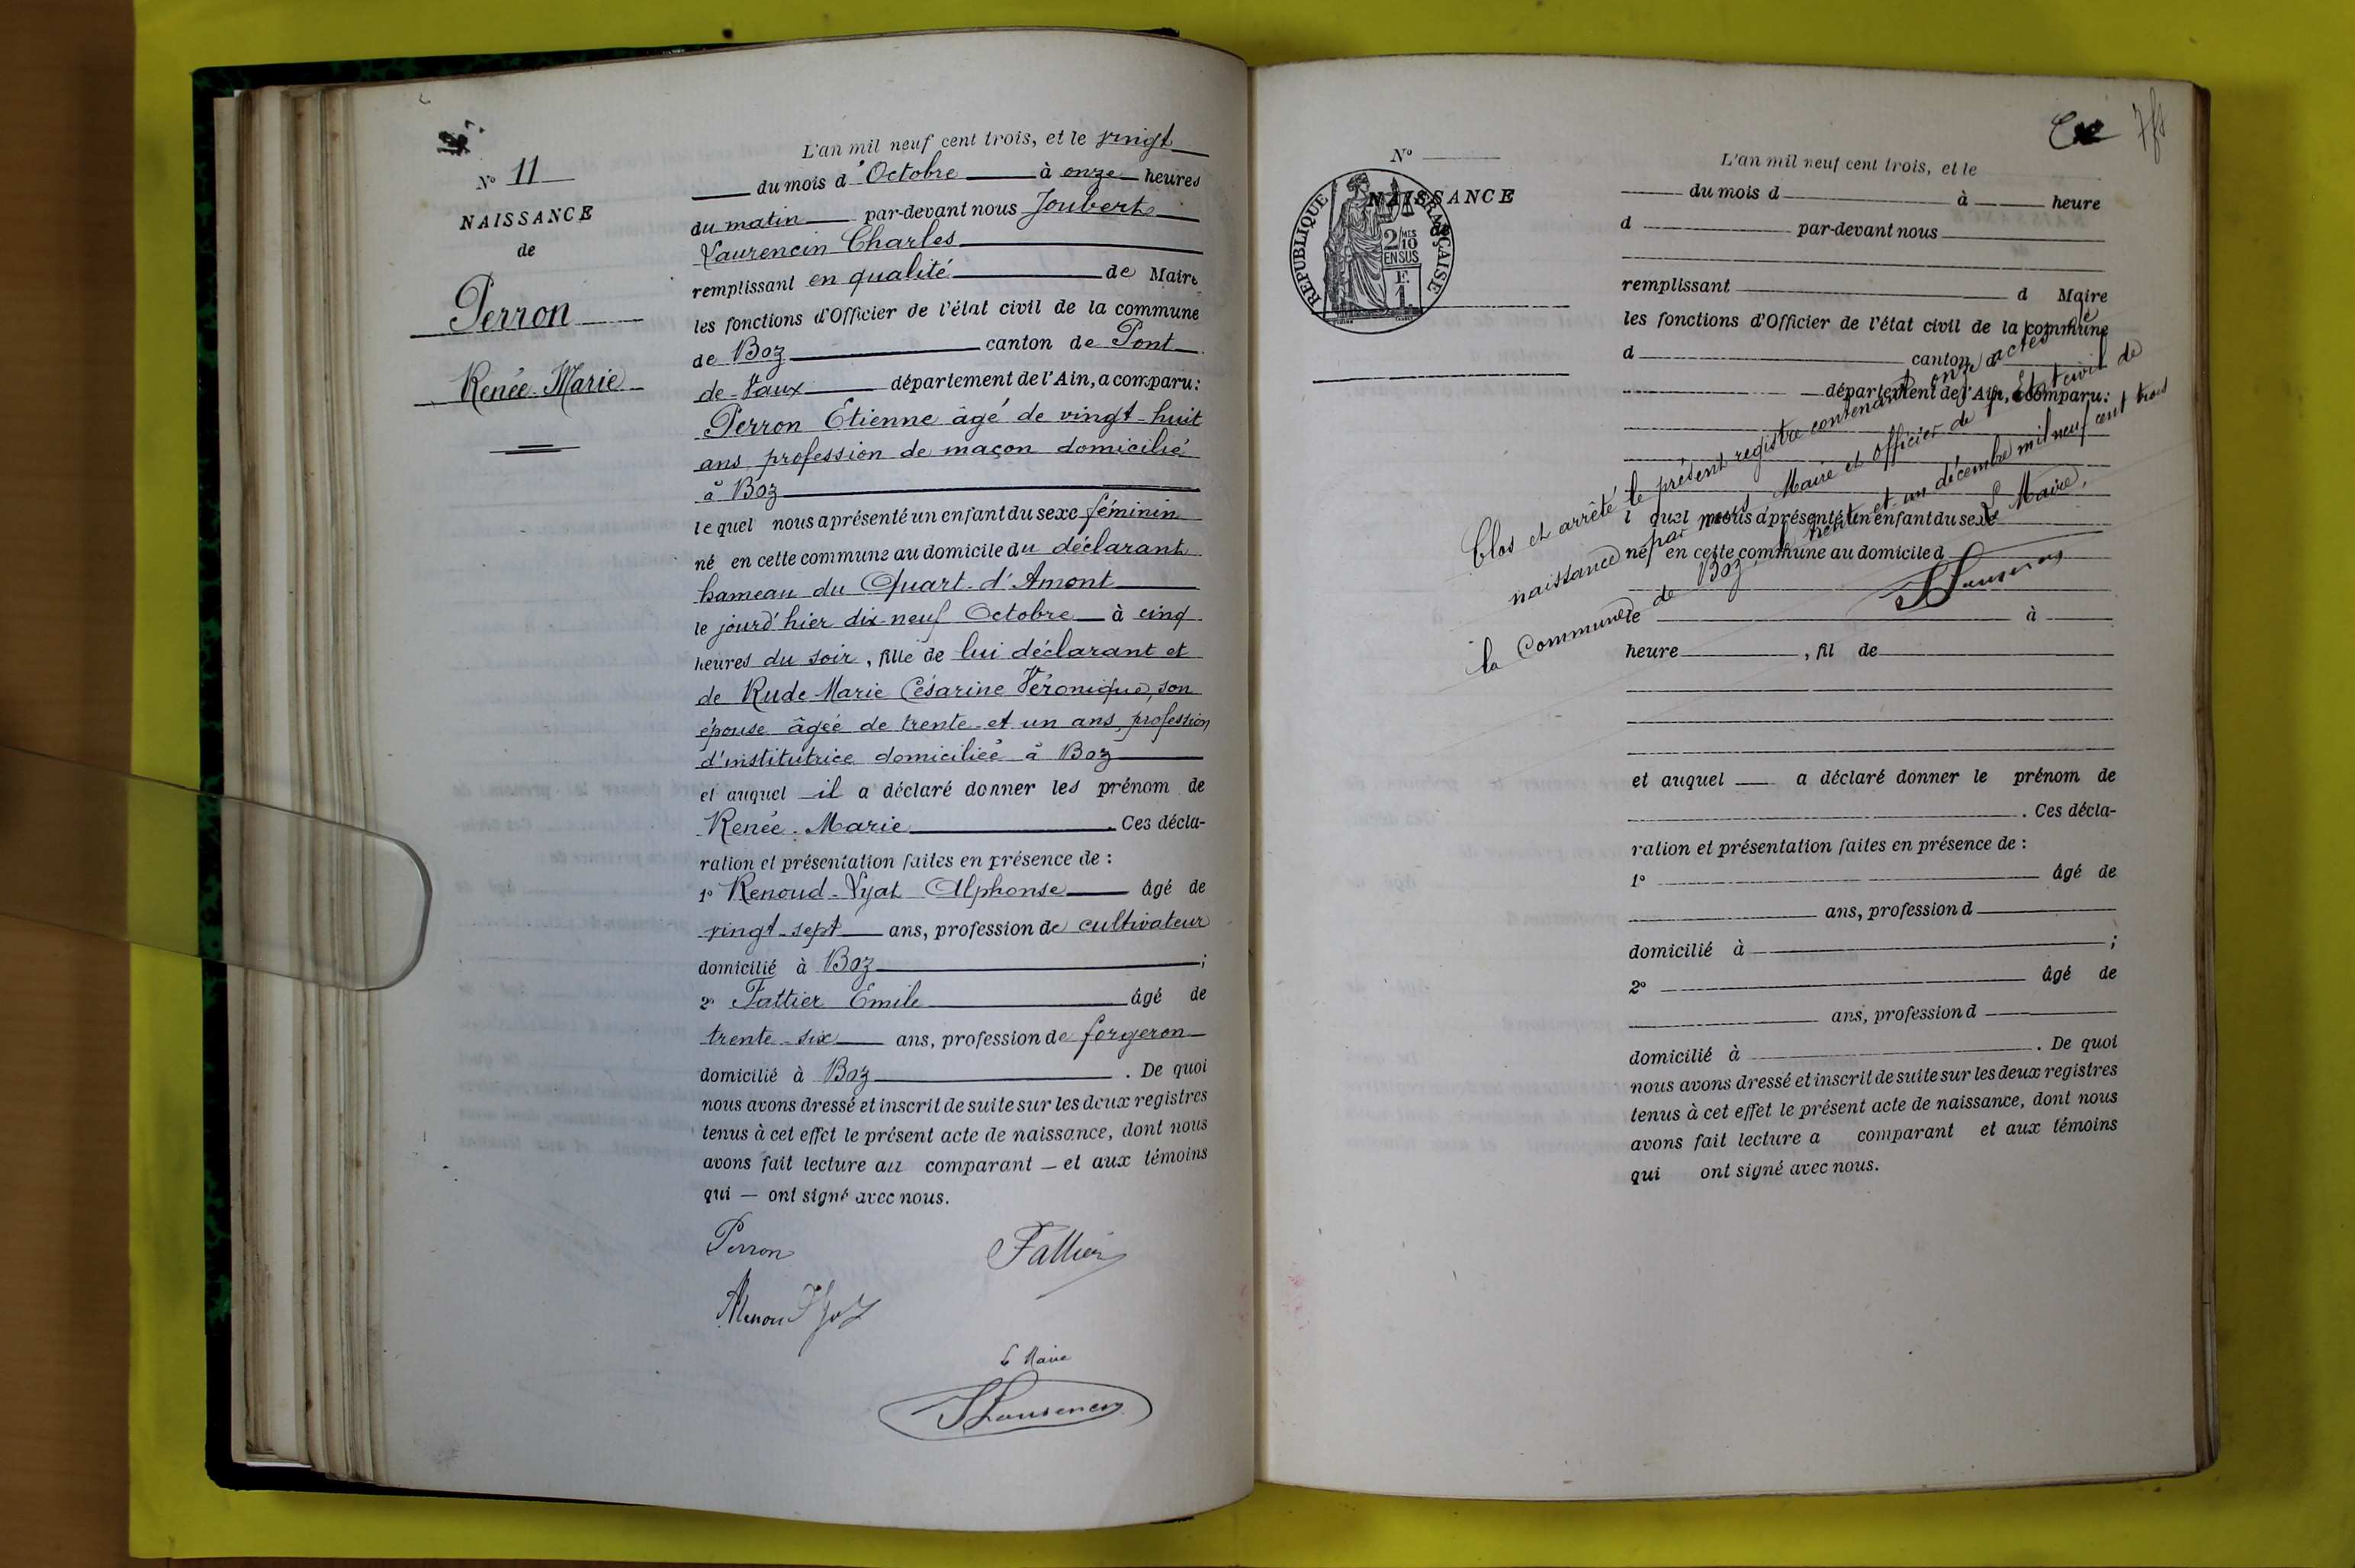 N° 11
NAISSANCE
de
Perron
Renée-Marie
L'an mil neuf cent trois, et le vingt
du mois d'Octobre à onze heures
du matin par-devant nous Joubert
Laurencin Charles
remplissant en qualité de Maire
les fonctions d'Officier de l'état civil de la commune
de Boz canton de Pont
de-Vaux département de l'Ain, a comparu:
Perron Étienne âgé de vingt-huit
ans profession de maçon domicilié
à Boz
lequel nous a présenté un enfant du sexe féminin
né en cette commune au domicile du déclarant
hameau du Quart-d'Amont
le jourd'hier dix-neuf Octobre à cinq
heures du soir, fille de lui déclarant et
de Rude Marie Césarine Véronique, son
épouse âgée de trente-et un ans, profession
d'institutrice domiciliée à Boz
et auquel il a déclaré donner les prénom de
Renée-Marie. Ces décla-
ration et présentation faites en présence de :
1° Renoud-Lyat Alphonse âgé de
vingt-sept ans, profession de cultivateur
domicilié à Boz ;
2° Fattier Emile âgé de
trente-six ans, profession de forgeron
domicilié à Boz . De quoi
nous avons dressé et inscrit de suite sur les deux registres
tenus à cet effet le présent acte de naissance, dont nous
avons fait lecture au comparant — et aux témoins
qui — ont signé avec nous.
Perron
Fattier
Le Maire
7f
N°
NAISSANCE
de
REPUBLIQUE FRANÇAISE
2/10 MES
EN SUS
F.
1.
L'an mil neuf cent trois, et le
du mois d à heure
d par-devant nous
remplissant d Maire
les fonctions d'Officier de l'état civil de la commune
d canton d
département de l'Ain, a comparu:
l quel nous a présenté un enfant du sexe
né en cette commune au domicile d
le à
heure , fil de
et auquel a déclaré donner le prénom de
. Ces décla-
ration et présentation faites en présence de :
1° âgé de
ans, profession d
domicilié à ;
2° âgé de
ans, profession d
domicilié à . De quoi
nous avons dressé et inscrit de suite sur les deux registres
tenus à cet effet le présent acte de naissance, dont nous
avons fait lecture a comparant et aux témoins
qui ont signé avec nous.
Clos et arrêté le présent registre contenant onze actes de
naissance par nous Maire et officier de l'Etat civil de
la Commune de Boz, le trente et un décembre mil neuf cent trois
Le Maire,